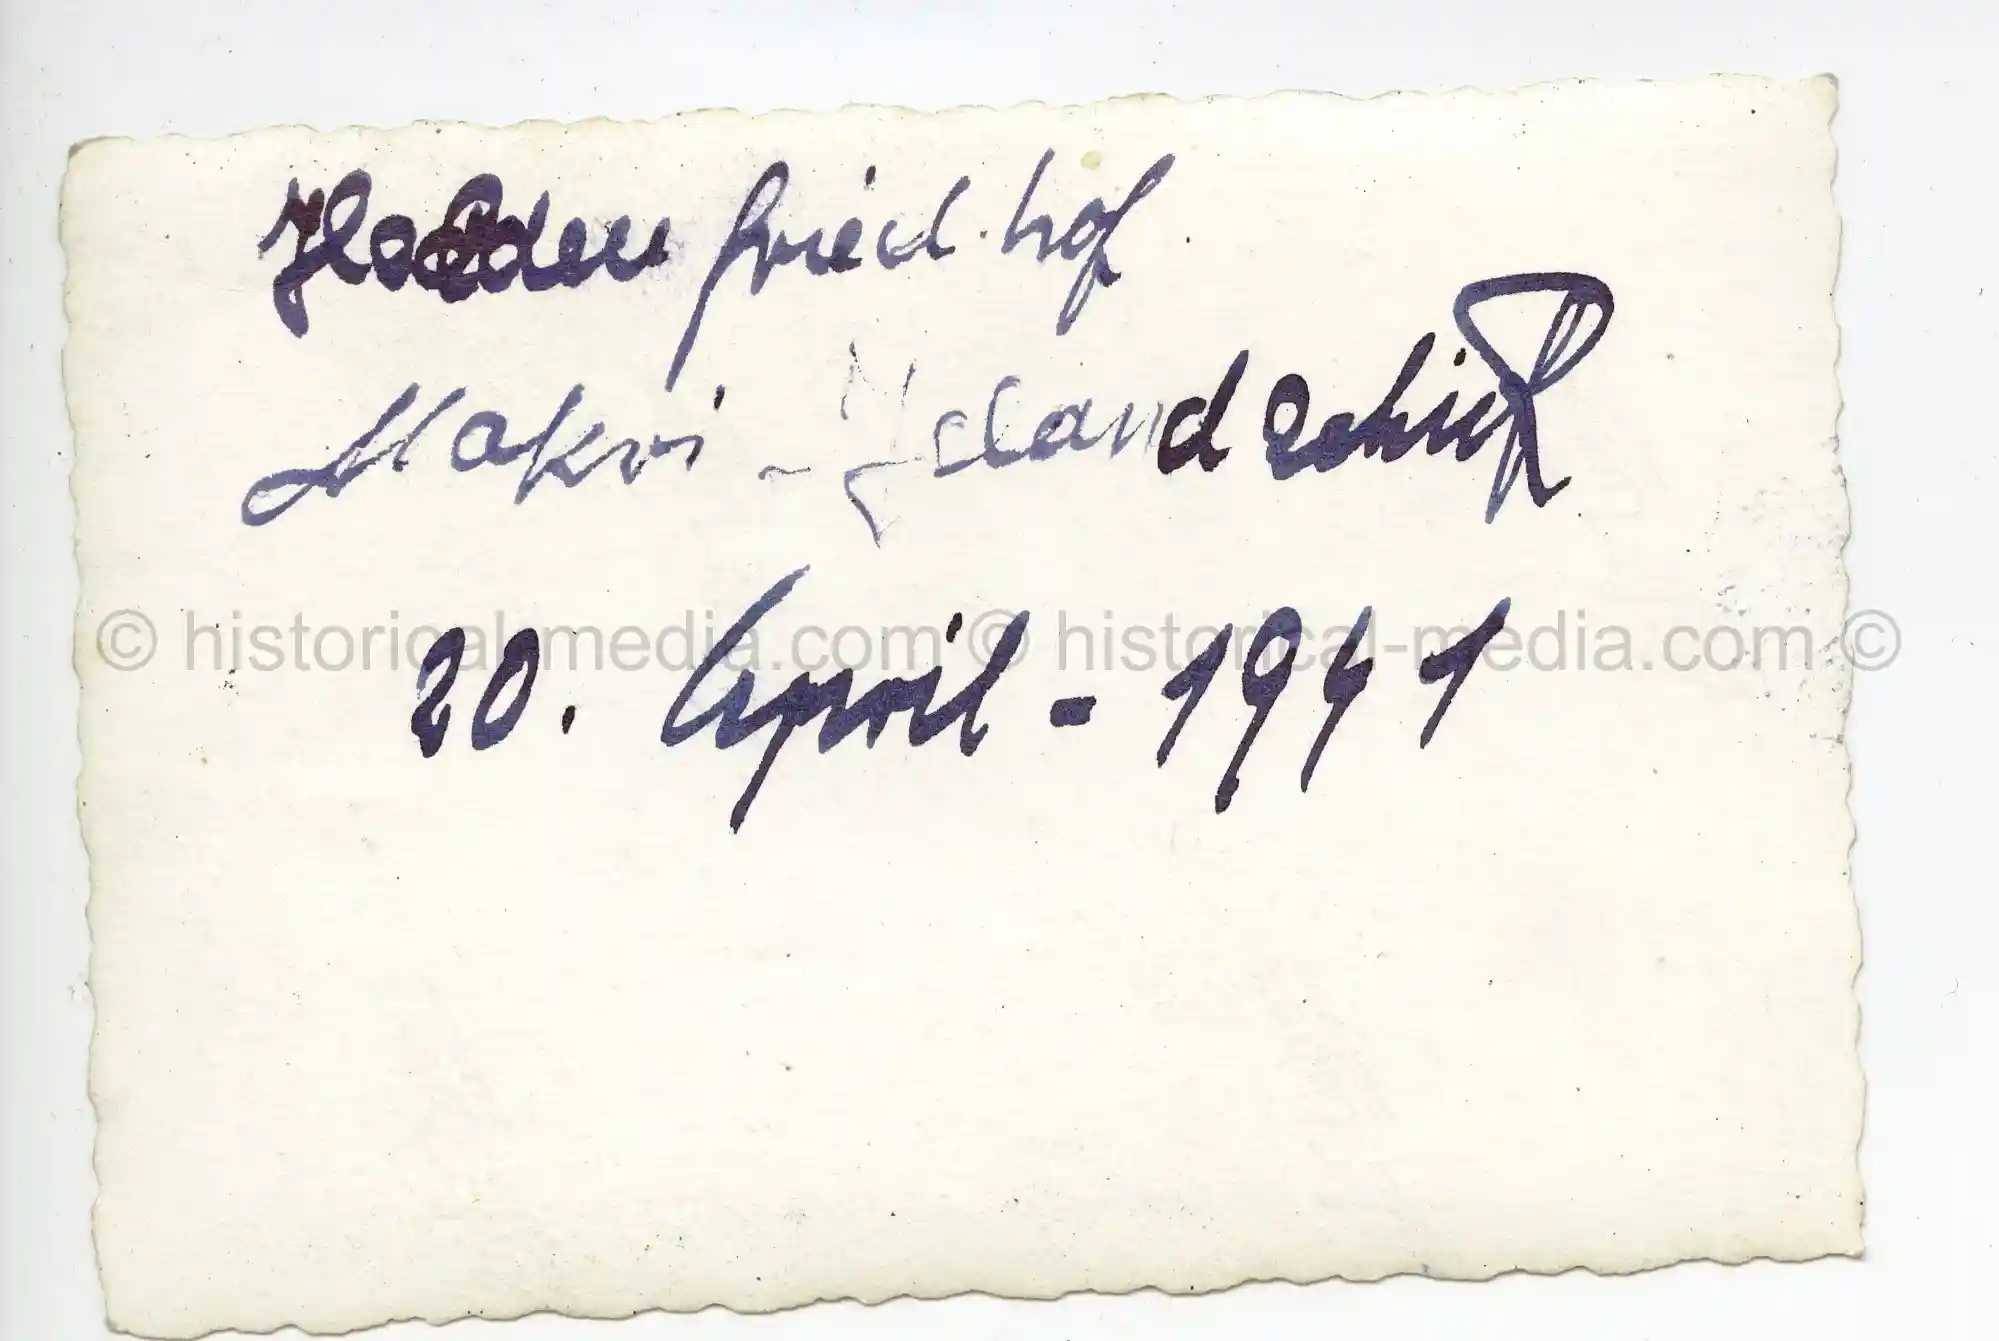 Heldenfriedhof
Makri-
20. April-1941
© historical-media.com © historical-media.com ©